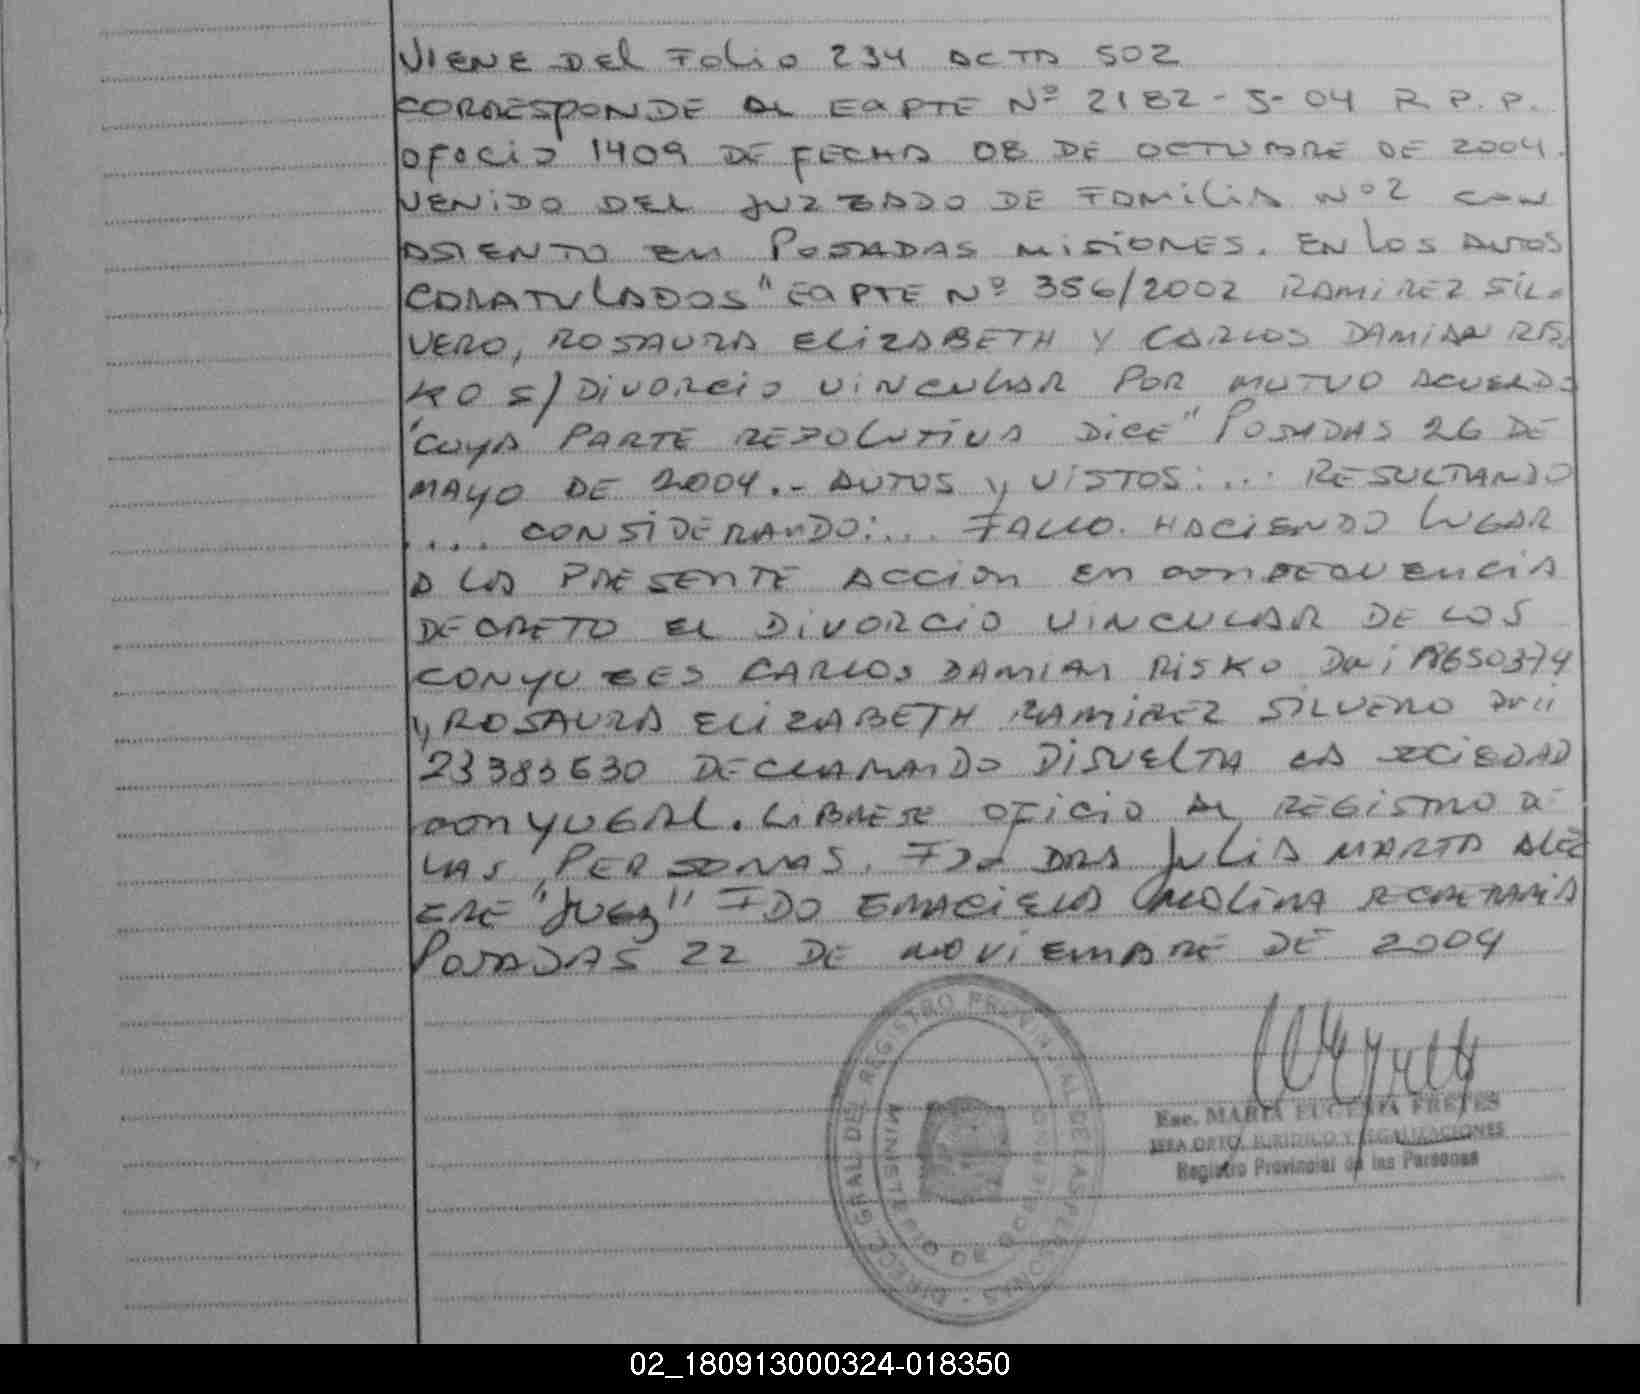 VIENE DEL FOLIO 234 ACTA 502
CORRESPONDE AL EXPTE Nº 2182-S-04 R.P.P.
OFICIO 1409 DE FECHA 08 DE OCTUBRE DE 2004.
VENIDO DEL JUZGADO DE FAMILIA Nº2 CON
ASIENTO EN POSADAS MISIONES. EN LOS AUTOS
CARATULADOS "EXPTE Nº 356/2002 RAMIREZ SIL-
VERO, ROSAURA ELIZABETH Y CARLOS DAMIAN RIS-
KO S/ DIVORCIO VINCULAR POR MUTUO ACUERDO
"CUYA PARTE RESOLUTIVA DICE" POSADAS 26 DE
MAYO DE 2004.- AUTOS Y VISTOS:... RESULTANDO
.... CONSIDERANDO:... FALLO. HACIENDO LUGAR
A LA PRESENTE ACCION EN CONSECUENCIA
DECRETO EL DIVORCIO VINCULAR DE LOS
CONYUGES CARLOS DAMIAN RISKO DNI
Y ROSAURA ELIZABETH RAMIREZ SILVERO DNI
23383630 DECLARANDO DISUELTA LA SOCIEDAD
CONYUGAL. LIBRESE OFICIO AL REGISTRO DE
LAS PERSONAS. FDO DRA JULIA MARTA ALE
GRE "JUEZ" FDO GRACIELA MOLINA SECRETARIA
POSADAS 22 DE NOVIEMBRE DE 2004
DIRECC. GRAL DEL REGISTRO PROVINCIAL DE LAS PERSONAS
MINISTERIO DE GOBIERNO
Esc. MARIA EUGENIA FREYES
JEFA DPTO. JURIDICO Y LEGALIZACIONES
Registro Provincial de las Personas
02_180913000324-018350